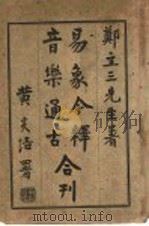 鄭立三先生著
易象今釋
音樂通古
合刊
黄炎培署